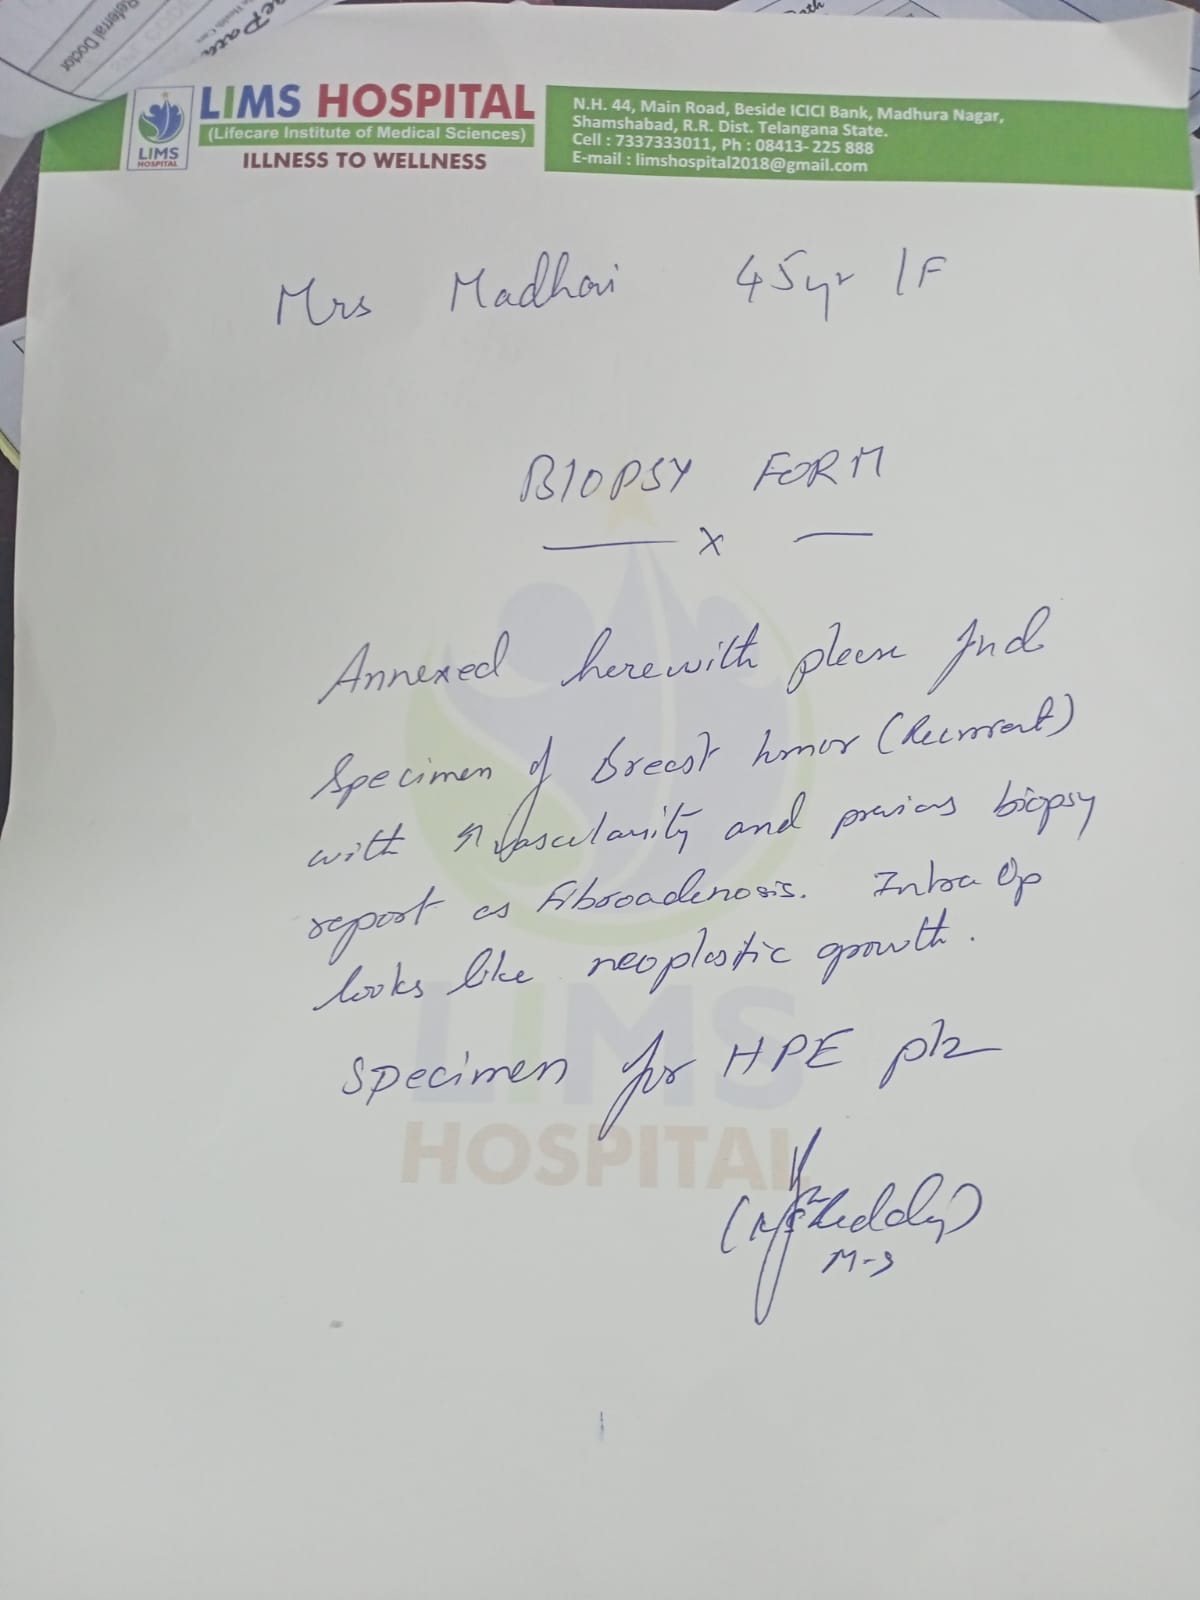 Referral Doctor
LIMS HOSPITAL
(Lifecare Institute of Medical Sciences)
ILLNESS TO WELLNESS
LIMS
HOSPITAL
N.H. 44, Main Road, Beside ICICI Bank, Madhura Nagar,
Shamshabad, R.R. Dist. Telangana State.
Cell : 7337333011, Ph : 08413- 225 888
E-mail : limshospital2018@gmail.com
Mrs Madhavi 45yr / F
BIOPSY FORM
x
Annexed herewith please find
Specimen of Breast tumor (Recurrent)
with ↑ vascularity and previous biopsy
report as Fibroadenosis. Intra Op
looks like neoplastic growth.
Specimen for HPE plz
Reddy)
M-S
LIMS
HOSPITAL